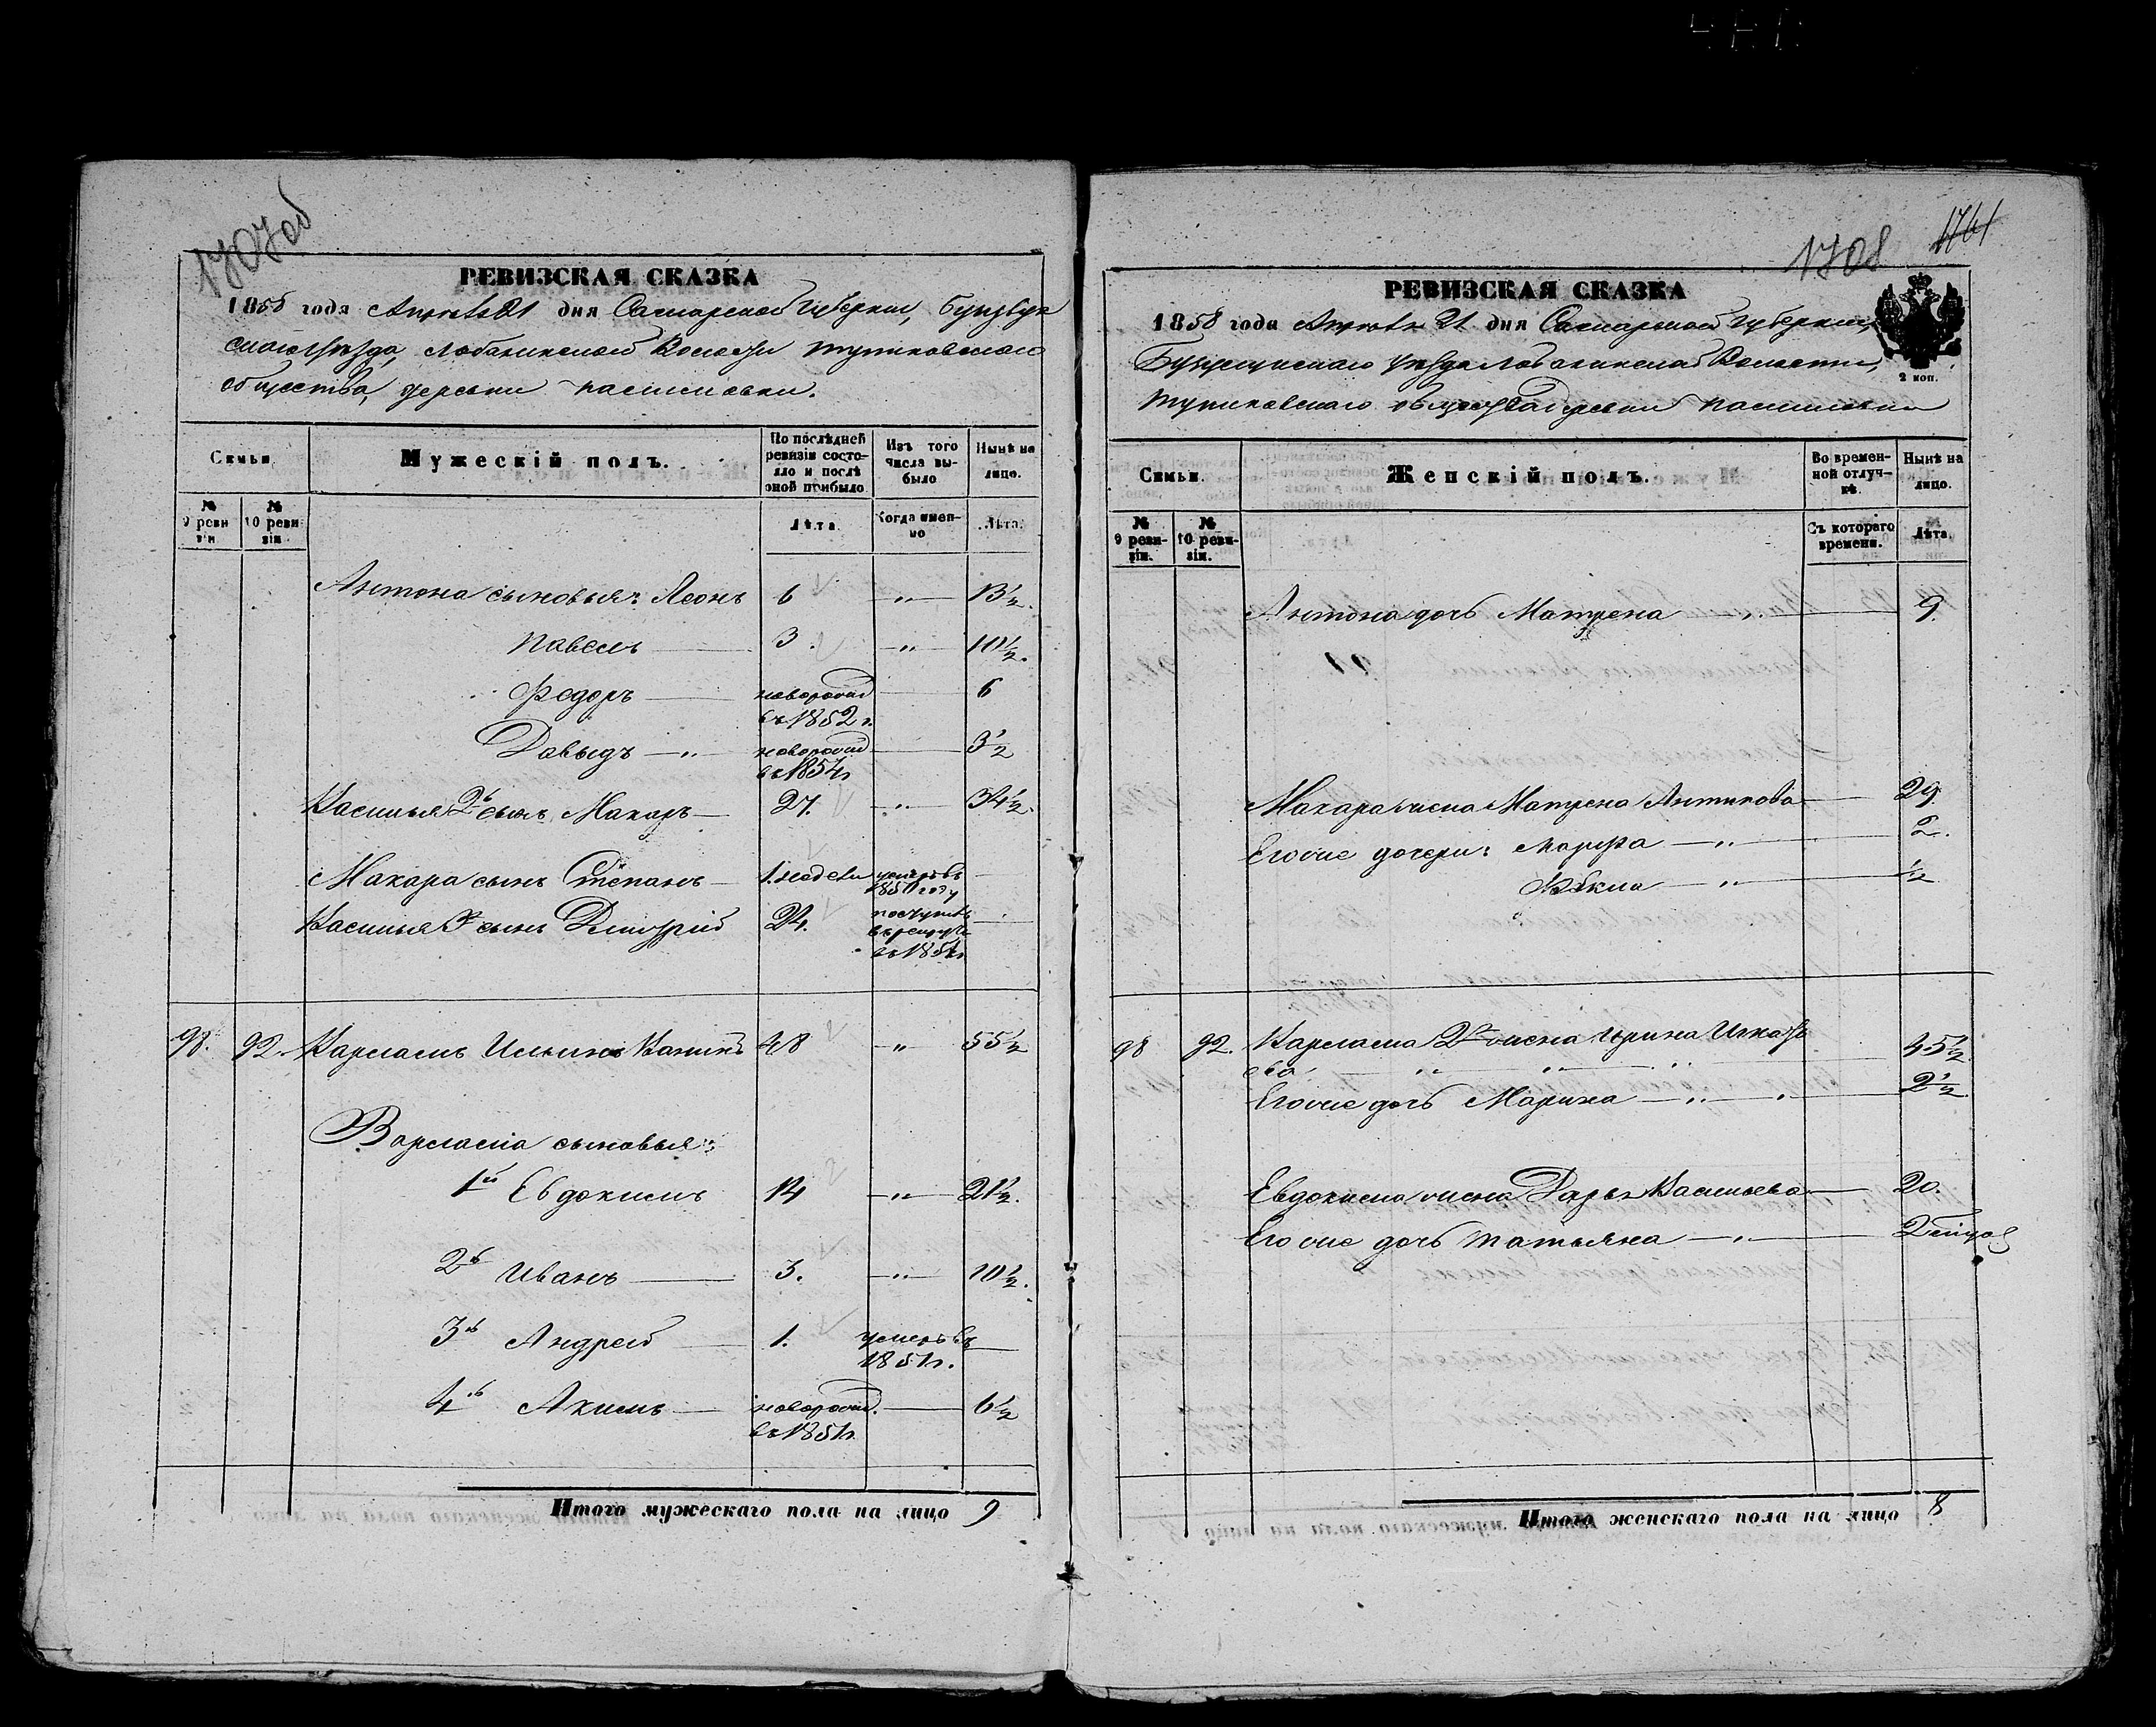 1707об
РЕВИЗСКАЯ СКАЗКА
1858 года Апреля 21 дня Самарской Губернии, Бузулук
скаго Уѣзда, Лобазинской Волости
общества, деревни
Семьи.
Мужескій полъ.
По послѣдней ревизіи состояло и послѣ оной прибыло
Изъ того числа выбыло
Нынѣ на лицо.
№ 9 ревизіи
№ 10 ревизіи
Лѣта.
Когда именно
Лѣта.
Антона сыновья: Леонъ 6 — „ — 13½.
Павелъ 3. — „ — 10½.
Федоръ — новорожд — 6
въ 1852 г.
Давыдъ — „ — новорожд — 3½
въ 1854 г
Касьяна 2й сынъ Макаръ — 27. — „ — 34½.
Макара сынъ Степанъ — 1. недели умеръ въ —
1851 году
Касьяна 3й сынъ Дмитрій 24. поступилъ —
въ рекруты
въ 1854 г
98. 92. Варламъ Ильинъ 48 — „ — 55½
Варлама сыновья:
1й Евдокимъ 14 — „ — 21½.
2й Иванъ — 3. — „ — 10½.
3й Андрей — 1. умеръ въ —
1851 г.
4й Акимъ — новорожд. — 6½
въ 1851 г
Итого мужескаго пола на лицо 9
1708 1761
РЕВИЗСКАЯ СКАЗКА
2 коп.
1858 года Апреля 21 дня Самарской Губернии,
Бузулуцкаго Уѣзда Лобазинской Волости,
общества деревни
Семьи.
Женскій полъ.
Во временной отлучкѣ.
Нынѣ на лицо.
№ 9 ревизіи.
№ 10 ревизіи.
Съ котораго времени.
Лѣта.
Антона дочь Матрена — „ — 9.
Макара жена Матрена Антипова — 29.
Его же дочери: Марфа — „ — 2.
Фёкла — „ — ½
98 92. Варлама 2я жена Ирина
ва — „ — „ 45½
Его же дочь Марина — „ — „ 2½
Евдокима жена Дарья Касьянова — 20.
Его же дочь Татьяна — „ — 2
Итого женскаго пола на лицо 8